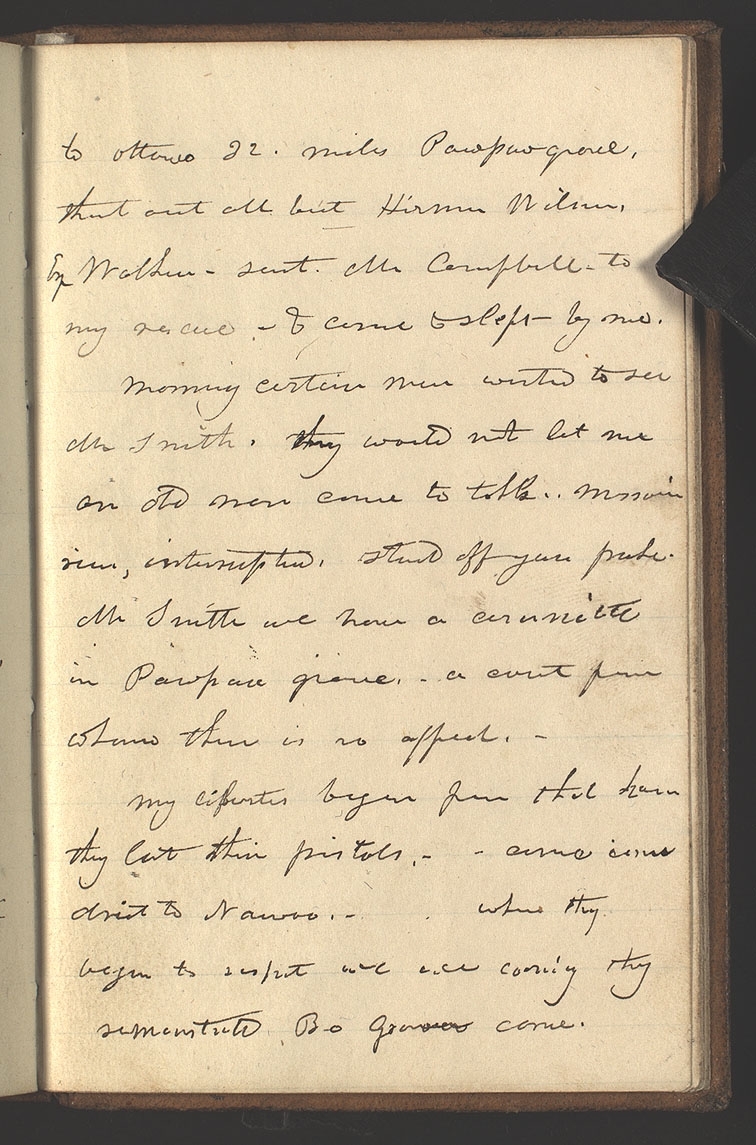 to ottawa 32. miles Pawpaw grove,
shut out all but Hirman Wilson,
Esq Walker - sent. Mr Campbell - to
my rescue - & came & slept by me.
morning certain men wanted to see
Mr Smith. they would not let me
an old man came to talk.. missour
rian, interrupted. stand off you puke.
Mr Smith we have a committe
in Pawpaw grove. - a court from
whom there is no appeal. -
my liberties began from that hour
they lost their pistols. - - and come
direct to Nauvoo. - . when they
began to suspect we were coming they
remonstrated Bro Grover come.